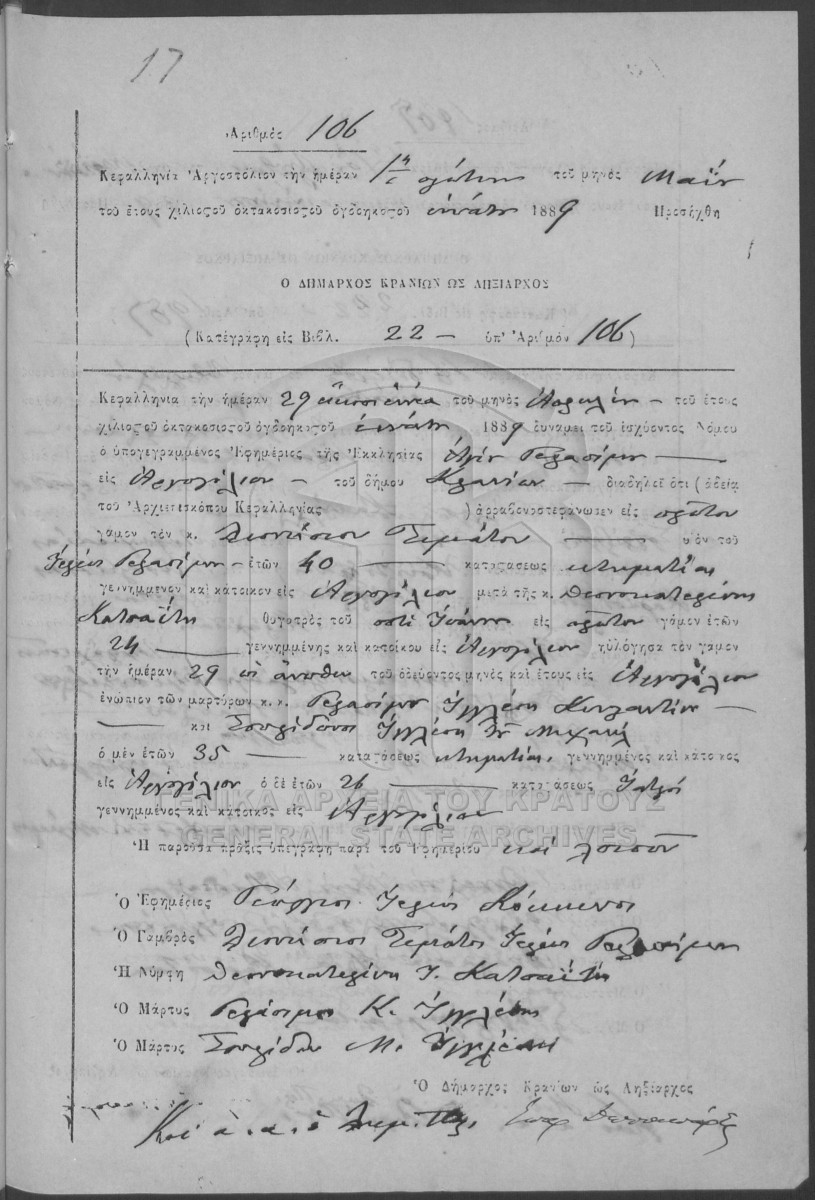 17
Ἀριθμὸς 106
Κεφαλληνία Ἀργοστόλιον τὴν ἡμέραν 1ῃ πρώτην τοῦ μηνὸς Μαΐου
τοῦ ἔτους χιλιοστοῦ ὀκτακοσιοστοῦ ὀγδοηκοστοῦ ἐννάτου 1889 Προσήχθη
Ὁ ΔΗΜΑΡΧΟΣ ΚΡΑΝΙΩΝ ΩΣ ΛΗΞΙΑΡΧΟΣ
(Κατεγράφη εἰς Βιβλ. 22 — ὑπ' Ἀριθμὸν 106)
Κεφαλληνία τὴν ἡμέραν 29 εἴκοσι ἐννέα τοῦ μηνὸς Ἀπριλίου — τοῦ ἔτους
χιλιοστοῦ ὀκτακοσιοστοῦ ὀγδοηκοστοῦ ἐννάτου 1889 δυνάμει τοῦ ἰσχύοντος Νόμου
ὁ ὑπογεγραμμένος Ἐφημέριος τῆς Ἐκκλησίας Ἁγίου Γερασίμου —
εἰς Ἀργοστόλιον — τοῦ δήμου Κρανίων — διαδηλεῖ ὅτι (ἀδείᾳ
τοῦ Ἀρχιεπισκόπου Κεφαλληνίας ) ἀρραβωνοστεφάνωσεν εἰς πρῶτον
γάμον τὸν κ. Διονύσιον Τυπάτον — υἱὸν τοῦ
Ἱερέως Γερασίμου — ἐτῶν 40 — καταστάσεως κτηματίας
γεννημένον καὶ κάτοικον εἰς Ἀργοστόλιον μετὰ τῆς κ. Θεοσκατερίνης
Κατσαΐτη θυγατρὸς τοῦ ποτὲ Ἰωάννου εἰς πρῶτον γάμον ἐτῶν
24 — γεννημένης καὶ κατοίκου εἰς Ἀργοστόλιον ηὐλόγησα τὸν γάμον
τὴν ἡμέραν 29 ὡς ἄνωθεν τοῦ ὁδεύοντος μηνὸς καὶ ἔτους εἰς Ἀργοστόλιον
ἐνώπιον τῶν μαρτύρων κ.κ. Γερασίμου Ἰγγλέση Κωνσταντίνου —
— καὶ Σπυρίδωνος Ἰγγλέση Μιχαήλ
ὁ μὲν ἐτῶν 35 — καταστάσεως κτηματίας, γεννημένος καὶ κάτοικος
εἰς Ἀργοστόλιον ὁ δὲ ἐτῶν 26 — καταστάσεως Ἰατρός
γεννημένος καὶ κάτοικος εἰς Ἀργοστόλιον
ΓΕΝΙΚΑ ΑΡΧΕΙΑ ΤΟΥ ΚΡΑΤΟΥΣ
GENERAL STATE ARCHIVES
Ἡ παροῦσα πρᾶξις ὑπεγράφη παρὰ τοῦ Ἐφημερίου καὶ λοιπῶν
Ὁ Ἐφημέριος Γεώργιος Ἱερεὺς Κόκκινος
Ὁ Γαμβρὸς Διονύσιος Τυπάτος Ἱερέως Γερασίμου
Ἡ Νύμφη Θεοσκατερίνη Ι. Κατσαΐτη
Ὁ Μάρτυς Γεράσιμος Κ. Ἰγγλέσης
Ὁ Μάρτυς Σπυρίδων Μ. Ἰγγλέσης
Ὁ Δήμαρχος Κρανίων ὡς Ληξίαρχος